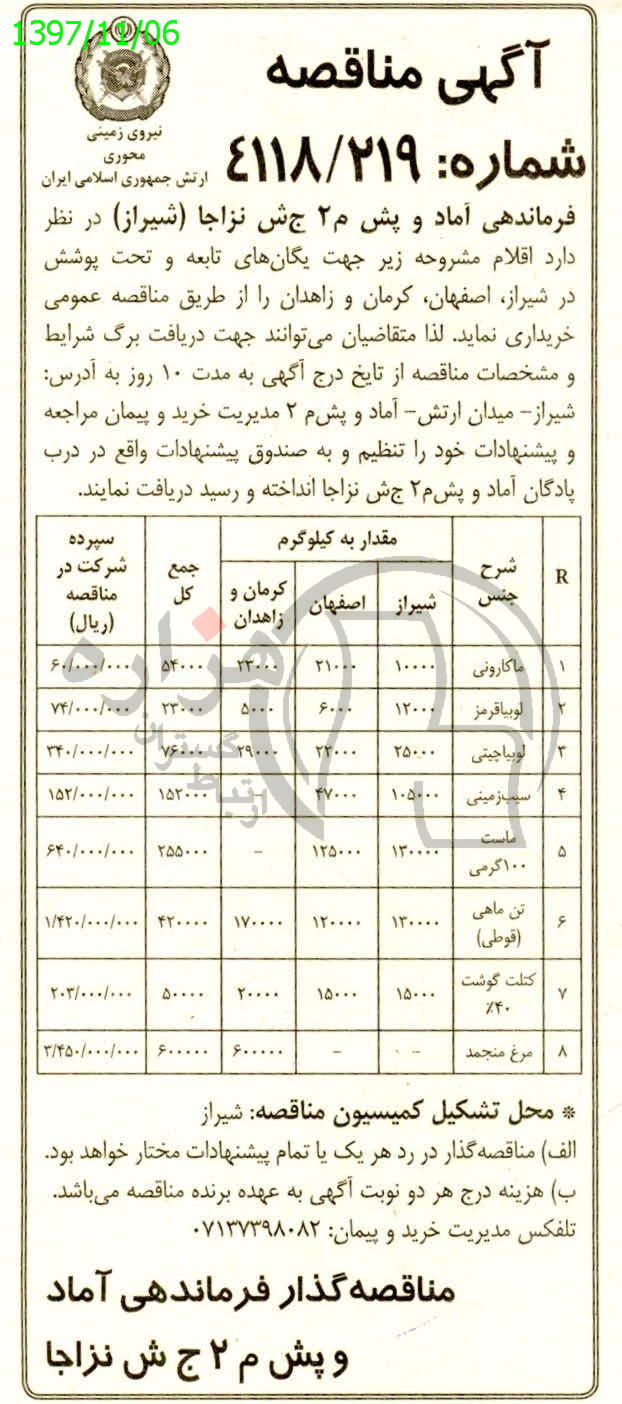 1397/11/06
آگهی مناقصه
نیروی زمینی
محوری
ارتش جمهوری اسلامی ایران
شماره: ٤١١٨/٢١٩
فرماندهی آماد و پش م۲ ج‌ش نزاجا (شیراز) در نظر
دارد اقلام مشروحه زیر جهت یگان‌های تابعه و تحت پوشش
در شیراز، اصفهان، کرمان و زاهدان را از طریق مناقصه عمومی
خریداری نماید. لذا متقاضیان می‌توانند جهت دریافت برگ شرایط
و مشخصات مناقصه از تایخ درج آگهی به مدت ۱۰ روز به آدرس:
شیراز- میدان ارتش- آماد و پش‌م ۲ مدیریت خرید و پیمان مراجعه
و پیشنهادات خود را تنظیم و به صندوق پیشنهادات واقع در درب
پادگان آماد و پش‌م۲ ج‌ش نزاجا انداخته و رسید دریافت نمایند.
R شرح جنس مقدار به کیلوگرم جمع کل سپرده شرکت در مناقصه (ریال)
شیراز اصفهان کرمان و زاهدان
۱ ماکارونی ۱۰۰۰۰ ۲۱۰۰۰ ۲۳۰۰۰ ۵۴۰۰۰ ۶۰/۰۰۰/۰۰۰
۲ لوبیاقرمز ۱۲۰۰۰ ۶۰۰۰ ۵۰۰۰ ۲۳۰۰۰ ۷۴/۰۰۰/۰۰۰
۳ لوبیاچیتی ۲۵۰۰۰ ۲۲۰۰۰ ۲۹۰۰۰ ۷۶۰۰۰ ۳۴۰/۰۰۰/۰۰۰
۴ سیب‌زمینی ۱۰۵۰۰۰ ۴۷۰۰۰ - ۱۵۲۰۰۰ ۱۵۲/۰۰۰/۰۰۰
۵ ماست ۱۰۰گرمی ۱۳۰۰۰۰ ۱۲۵۰۰۰ - ۲۵۵۰۰۰ ۶۴۰/۰۰۰/۰۰۰
۶ تن ماهی (قوطی) ۱۳۰۰۰۰ ۱۲۰۰۰۰ ۱۷۰۰۰۰ ۴۲۰۰۰۰ ۱/۴۲۰/۰۰۰/۰۰۰
۷ کتلت گوشت ۴۰٪ ۱۵۰۰۰ ۱۵۰۰۰ ۲۰۰۰۰ ۵۰۰۰۰ ۲۰۳/۰۰۰/۰۰۰
۸ مرغ منجمد - - ۶۰۰۰۰۰ ۶۰۰۰۰۰ ۳/۴۵۰/۰۰۰/۰۰۰
هزاره
گستران
ارتباط
* محل تشکیل کمیسیون مناقصه: شیراز
الف) مناقصه‌گذار در رد هر یک یا تمام پیشنهادات مختار خواهد بود.
ب) هزینه درج هر دو نوبت آگهی به عهده برنده مناقصه می‌باشد.
تلفکس مدیریت خرید و پیمان: ۰۷۱۳۷۳۹۸۰۸۲
مناقصه‌گذار فرماندهی آماد
و پش م ۲ ج ش نزاجا